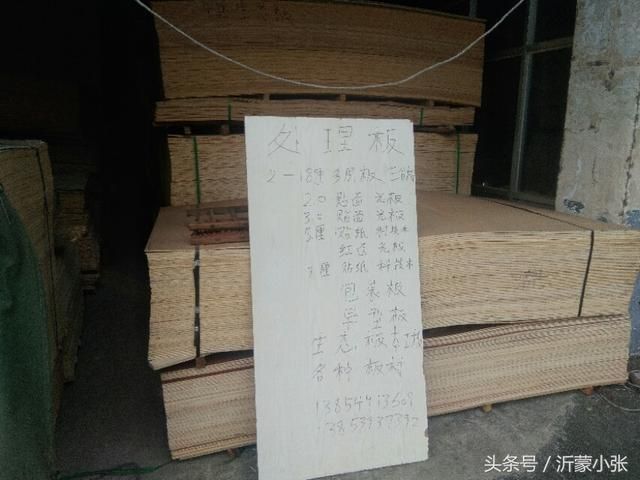 处理板
2-18厘 多层板 三胺
2.0 贴面 光板
3.0 贴面 光板
5厘 贴纸 科技木
红送 光板
7厘 贴纸 科技木
包装板
学型板
生态板 专区板
各种板材
13854413609
13853937392
头条号/沂蒙小张